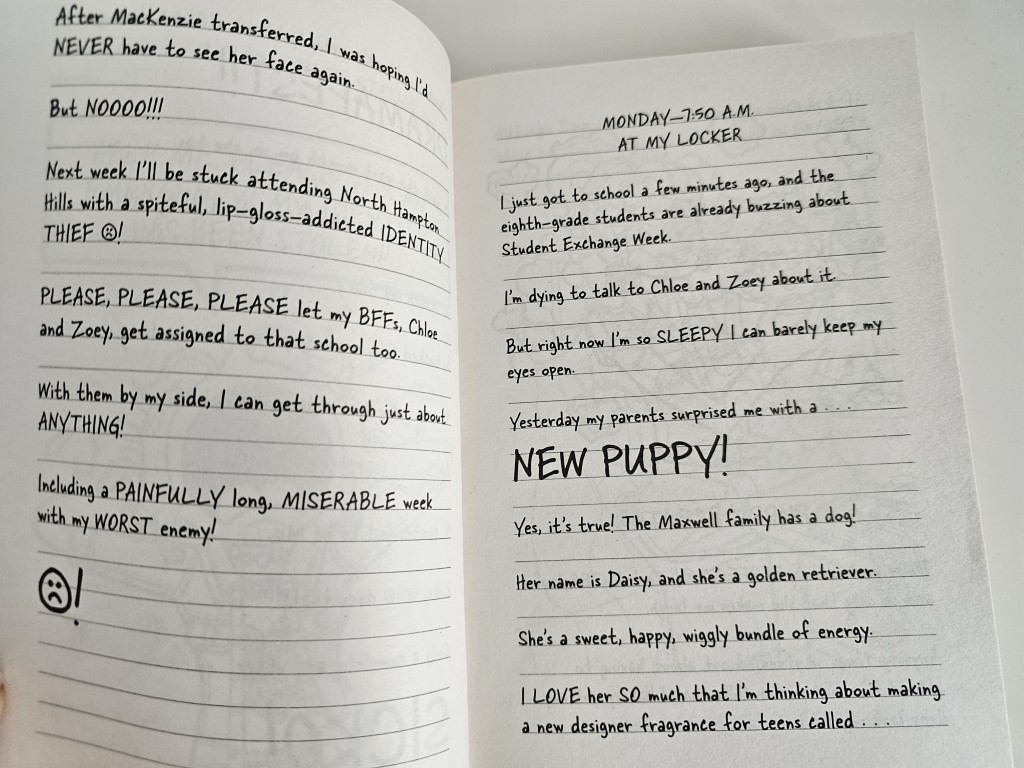 After MacKenzie transferred, I was hoping I'd
NEVER have to see her face again.
But NOOOO!!!
Next week I'll be stuck attending North Hampton
Hills with a spiteful, lip-gloss-addicted IDENTITY
THIEF ☹!
PLEASE, PLEASE, PLEASE let my BFFs, Chloe
and Zoey, get assigned to that school too.
With them by my side, I can get through just about
ANYTHING!
Including a PAINFULLY long, MISERABLE week
with my WORST enemy!
☹!
MONDAY—7:50 A.M.
AT MY LOCKER
I just got to school a few minutes ago, and the
eighth-grade students are already buzzing about
Student Exchange Week.
I'm dying to talk to Chloe and Zoey about it.
But right now I'm so SLEEPY I can barely keep my
eyes open.
Yesterday my parents surprised me with a . . .
NEW PUPPY!
Yes, it's true! The Maxwell family has a dog!
Her name is Daisy, and she's a golden retriever.
She's a sweet, happy, wiggly bundle of energy.
I LOVE her SO much that I'm thinking about making
a new designer fragrance for teens called . . .